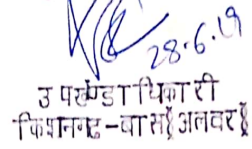 28.6.19
उपखण्डाधिकारी
किशनगढ-बास(अलवर)